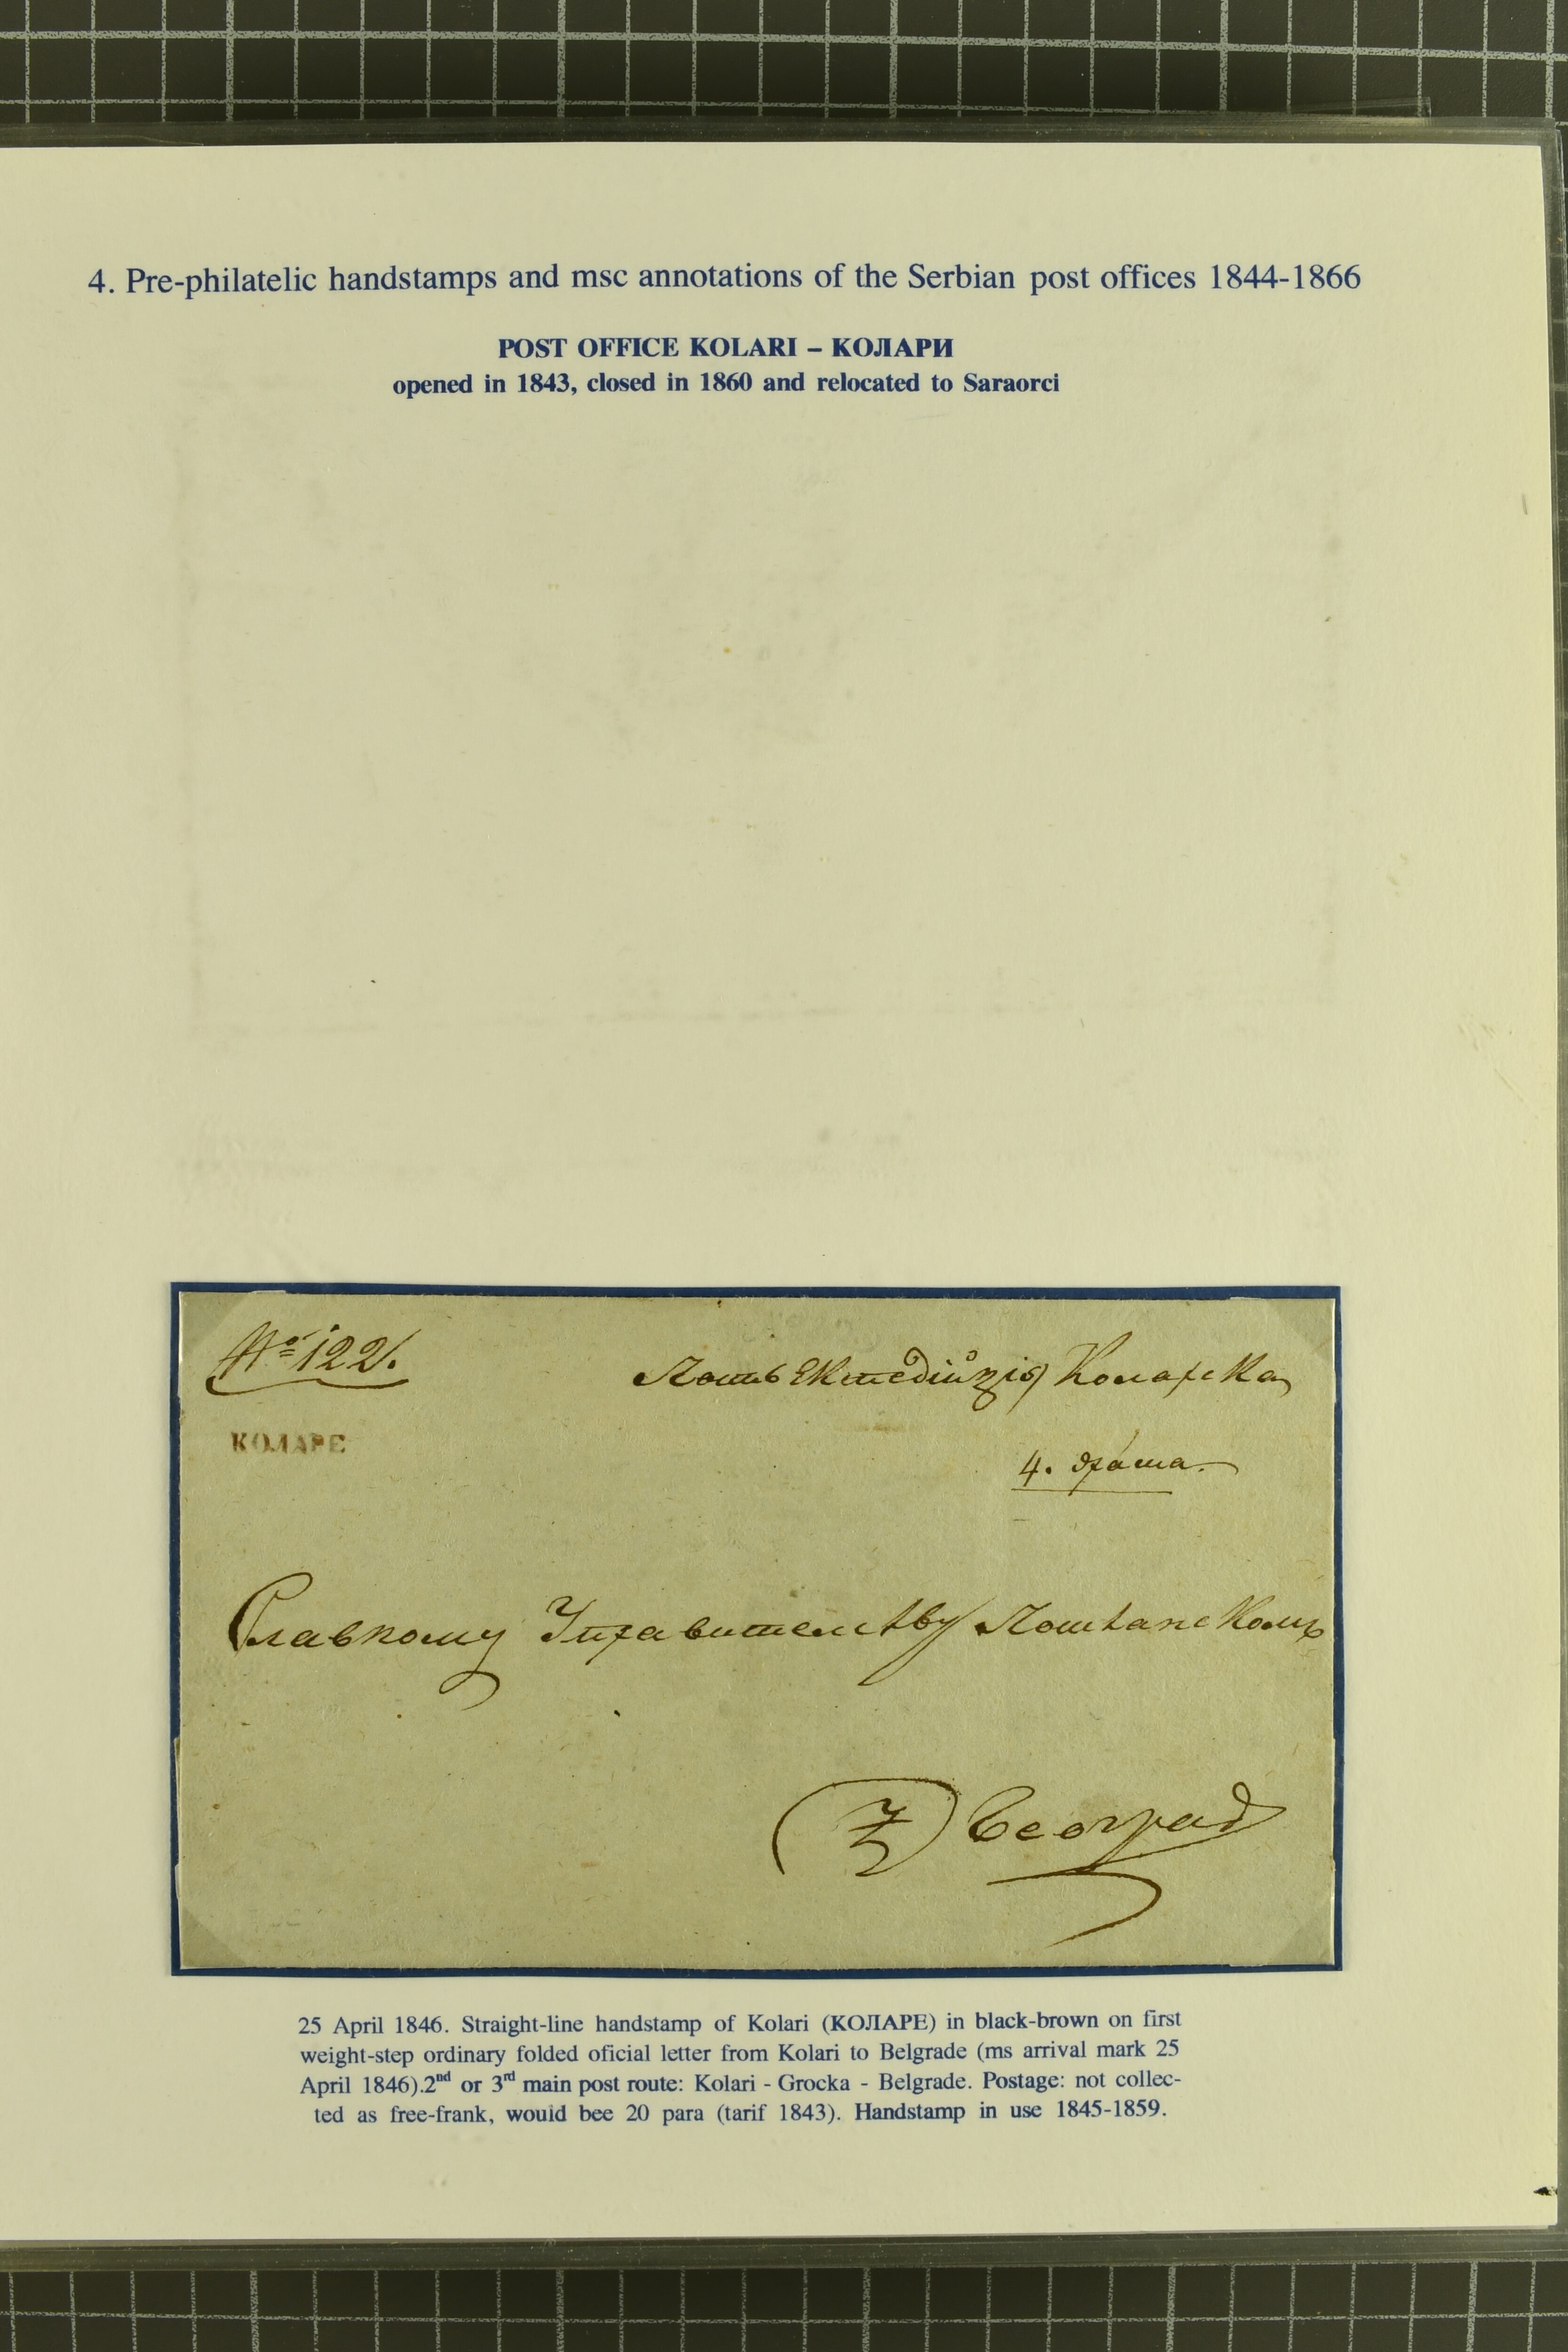 4. Pre-philatelic handstamps and msc annotations of the Serbian post offices 1844-1866
POST OFFICE KOLARI – КОЛАРИ
opened in 1843, closed in 1860 and relocated to Saraorci
No 122.
Поштъ Експедіцїя Коларска
КОЛАРЕ
4. драма
Главному Управителству Поштанскому
у Београд
25 April 1846. Straight-line handstamp of Kolari (КОЛАРЕ) in black-brown on first
weight-step ordinary folded oficial letter from Kolari to Belgrade (ms arrival mark 25
April 1846).2nd or 3rd main post route: Kolari - Grocka - Belgrade. Postage: not collec-
ted as free-frank, would bee 20 para (tarif 1843). Handstamp in use 1845-1859.